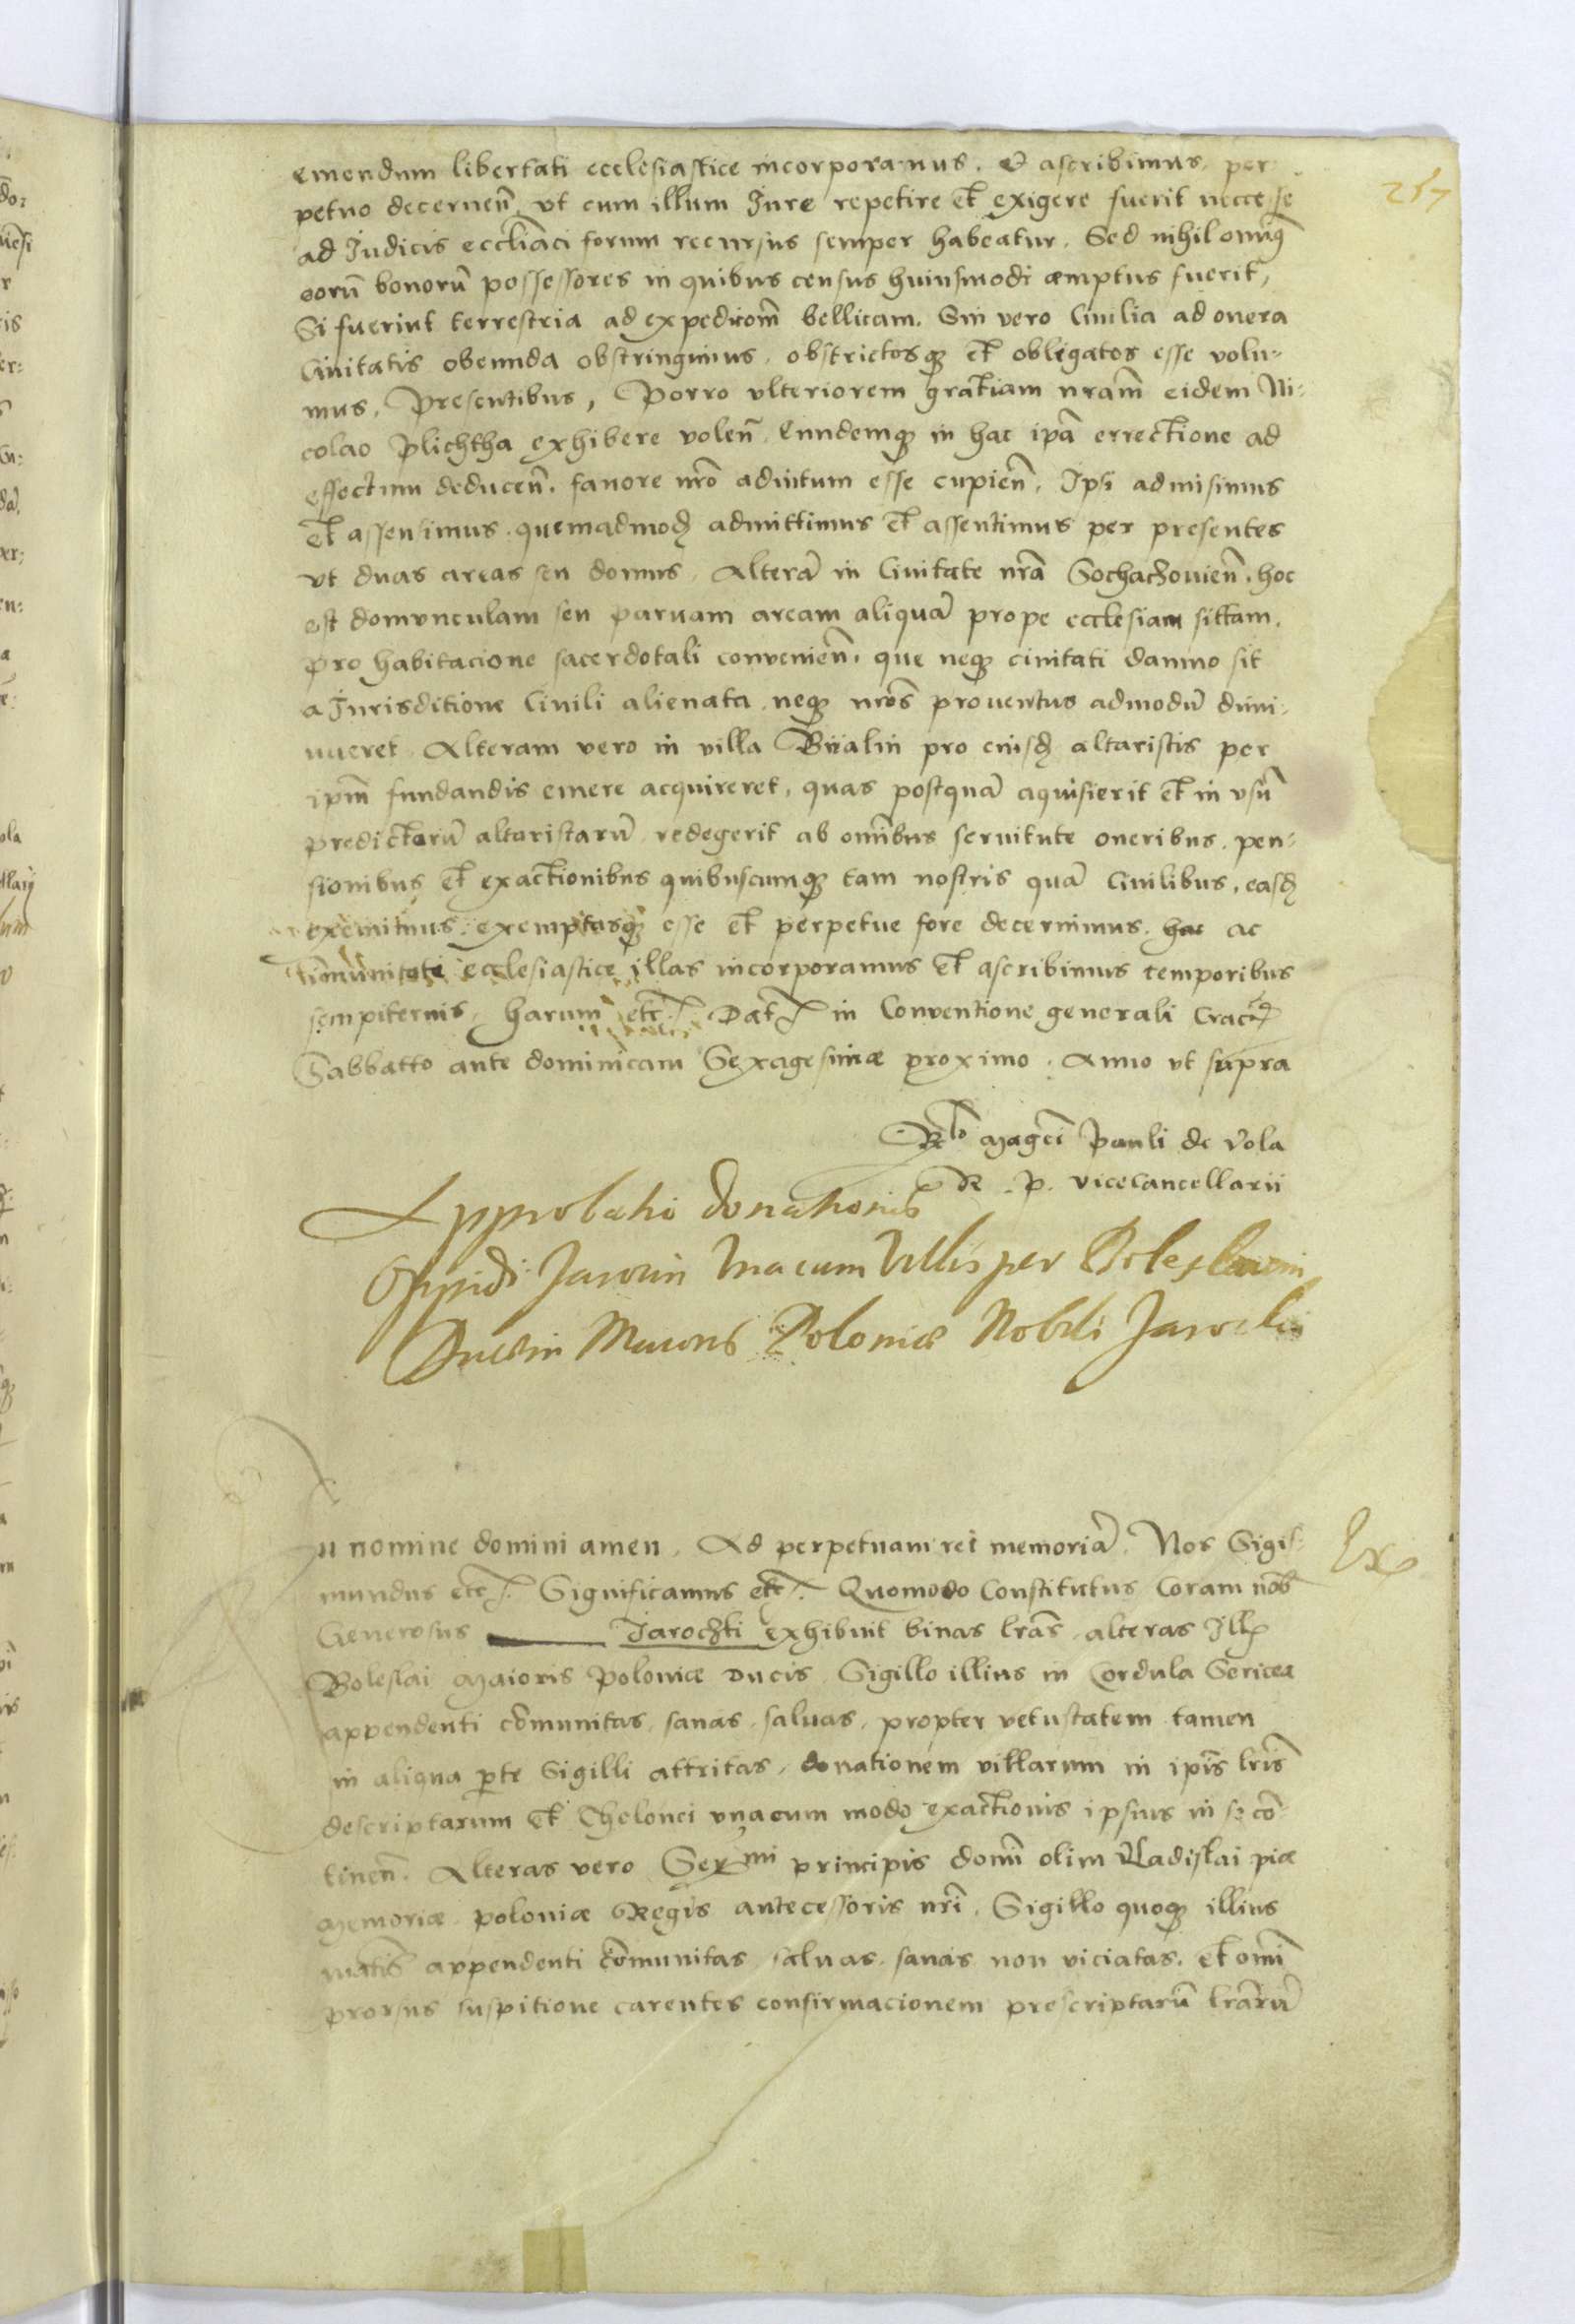 emendum libertati ecclesiastice incorporamus. Et ascribimus, per
petuo decernen̄, vt cum illum Jure repetire et exigere fuerit necesse
ad Judicis eccl̄iaci forum recursus semper habeatur. Sed nihilominq̄
eorū bonorū possessores in quibus census huiusmodi æmptus fuerit,
Si fuerint terrestria ad expedicom̄ bellicam. Sin vero Ciuilia ad onera
Ciuitatis obeunda obstringimus, obstrictosq₃ et obligatos esse volu-
mus. Presentibus, Porro vlteriorem gratiam nram̄ eidem Ni-
colao Plichtha exhibere volen̄. Eundemq₃ in hac ip̄a errectione ad
effectum deducen̄. fauore nr̄o adiutum esse cupien̄. Ipsi admisimus
et assensimus. quemadmoḍ admittimus et assentimus per presentes
vt duas areas seu domus, Alterā in Ciuitate nrā Sochaczouien̄. hoc
est domunculam seu paruam aream aliquā prope ecclesiam sittam.
pro habitacione sacerdotali convenien̄. que neq₃ ciuitati damno sit
a Jurisditione Ciuili alienata. neq₃ nr̄os prouentus admodū dimi-
nueret Alteram vero in villa Biialin pro eiusḍ altaristis per
ipm̄ fundandis emere acquireret, quas postquā aquisierit et in vsū
predictarū altaristarū redegerit ab omībus seruitute oneribus. pen-
sionibus et exactionibus quibuscumq₃ tam nostris quā Ciuilibus, easḍ
eximimus. exemptasq₃ esse et perpetue fore decernimus. hac ac
Immunitati ecclesiastice illas incorporamus et ascribimus temporibus
sempiternis. harum etc. Dat in Conventione generali Crac̄
Sabbatto ante dominicam Sexagesimæ proximo. Anno vt supra
Rlō Magcī Pauli de Vola
R. P. vicecancellarii
Approbatio donationis
Oppidi Jarocin vnacum Villis per Boleslaum
Ducem Maioris Poloniæ Nobili Jarockii
In nomine domini amen. Ad perpetuam rei memoriā. Nos Sigis-
mundus etc. Significamus etc. Quomodo Constitutus Coram nob̄
Generosus Jaroczki exhibuit binas lrās, alteras Ill
Boleslai Maioris Poloniæ Ducis, Sigillo illius in Cordula Sericea
appendenti cōmunitas, sanas, saluas, propter vetustatem tamen
in aliqua ꝑte Sigilli attritas, donationem villarum in ipīs lrīs
descriptarum et Thelonei vnacum modo exactionis ipsius in se cō
tinen̄. Alteras vero Ser^mi principis domī olim Vladislai piæ
Memoriæ Poloniæ Regis antecessoris nrī. Sigillo quoq₃ illius
appendenti cōmunitas saluas, sanas non viciatas. et omī
prorsus suspitione carentes confirmacionem prescriptarū lrārū
Ex
257